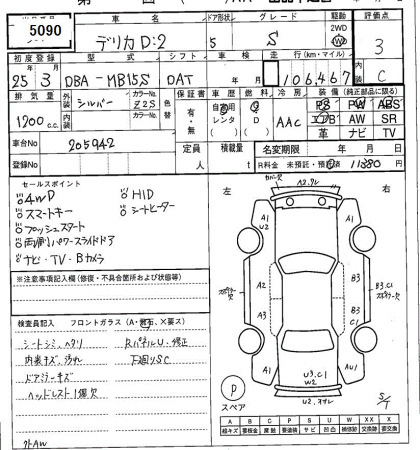 5090
車名
ドア形状
グレード
駆動
評価点
デリカD:2
5
S
2WD
4WD
3
初度登録
型式
シフト
車検
走行(km・マイル)
内装
25年3月
DBA-MB15S
DAT
106,467
C
排気量
外装
カラーNo.
色替
保証書
車歴
燃料
冷房
装備(純正部品に限る)
1200c.c.
シルバー
Z2S
有・無
自家用
レンタ
G
D
AAC
PS PW ABS
エアB AW SR
革 ナビ TV
車台No
205942
登録No
定員
人
積載量
t
名変期限 年 月 日
R料金 未預託・預託済 11380円
セールスポイント
4WD
HID
スマートキー
シートヒーター
プッシュスタート
両側パワースライドドア
ナビ・TV・Bカメラ
※注意事項記入欄(修復・不具合箇所および状態等)
検査員記入
フロントガラス(A・飛石、×要ス)
シートシミ、ヘタリ
RパネルU・修正
内装キズ、汚れ
下廻りSC
ドアミラーキズ
ヘッドレスト1個欠
外AW
左
右
A1
U2
A1
A2
B3
A3
B3.C1
A1
AU1
U3.C1
W2
P
スペア
S/T
A B C P S U W X XX